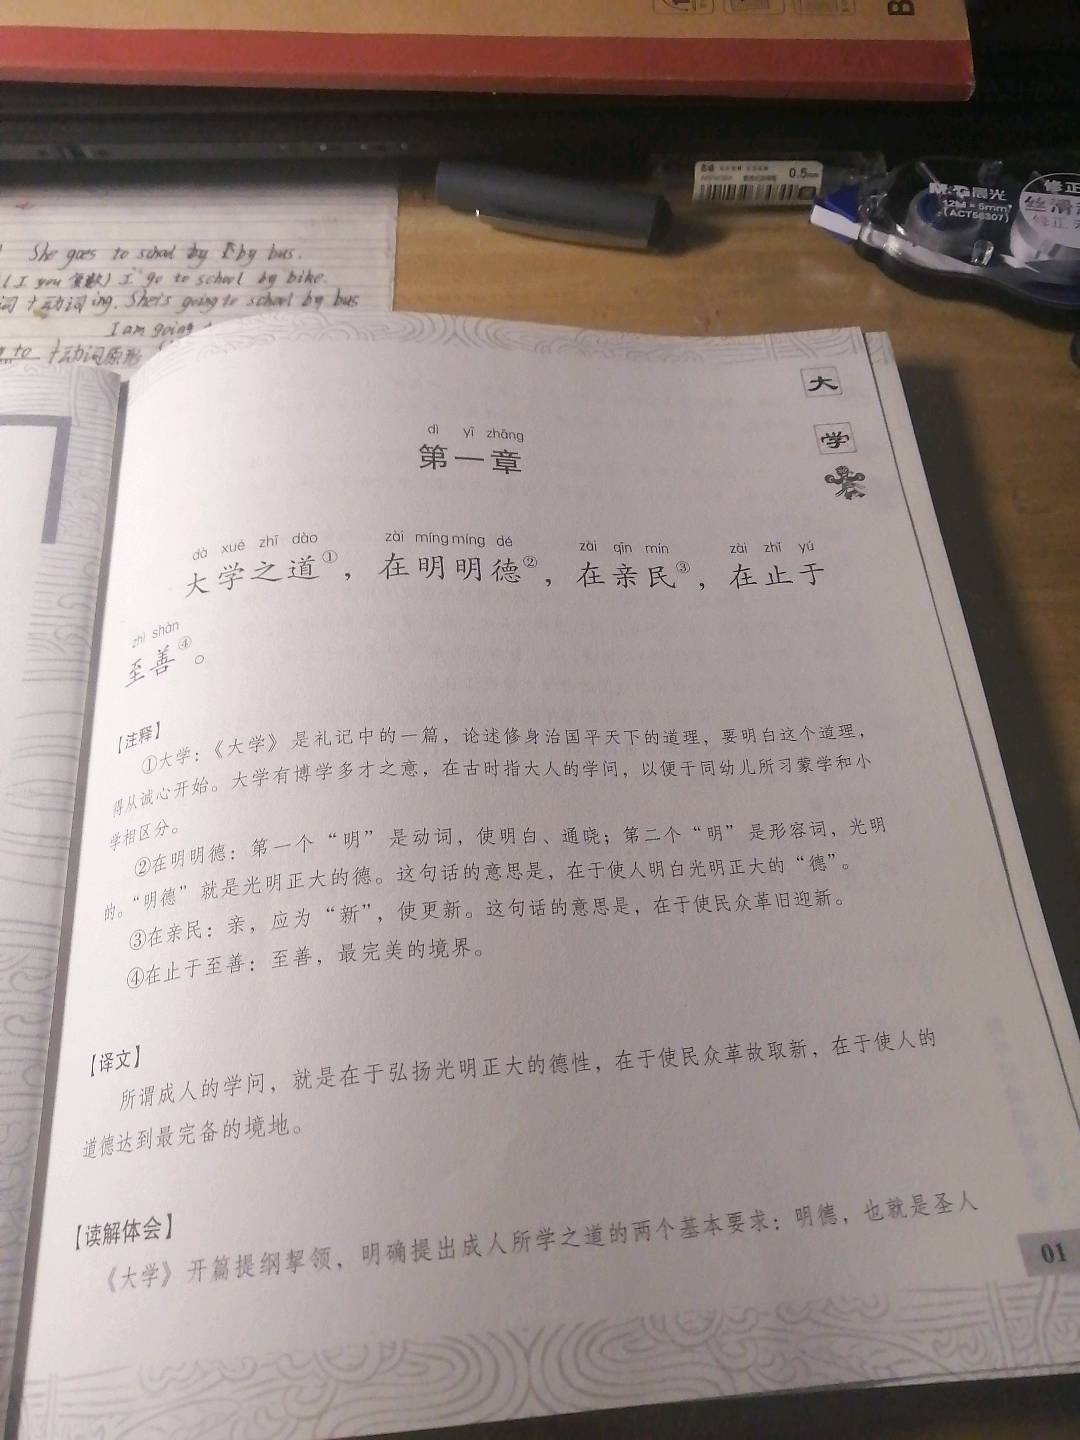 B
0.5mm
M&G晨光
12M×5mm
(ACT56307)
修正
丝滑
修正
She goes to school by by bus.
(I you 复数) I go to school by bike.
词+动词ing. She's going to school by bus
I am going
to +动词原形
大
学
dì yī zhāng
第一章
dà xué zhī dào zài míng míng dé zài qīn mín zài zhǐ yú
大学之道①，在明明德②，在亲民③，在止于
zhì shàn
至善④。
【注释】
①大学：《大学》是礼记中的一篇，论述修身治国平天下的道理，要明白这个道理，
得从诚心开始。大学有博学多才之意，在古时指大人的学问，以便于同幼儿所习蒙学和小
学相区分。
②在明明德：第一个“明”是动词，使明白、通晓；第二个“明”是形容词，光明
的。“明德”就是光明正大的德。这句话的意思是，在于使人明白光明正大的“德”。
③在亲民：亲，应为“新”，使更新。这句话的意思是，在于使民众革旧迎新。
④在止于至善：至善，最完美的境界。
【译文】
所谓成人的学问，就是在于弘扬光明正大的德性，在于使民众革故取新，在于使人的
道德达到最完备的境地。
【读解体会】
《大学》开篇提纲挈领，明确提出成人所学之道的两个基本要求：明德，也就是圣人
01